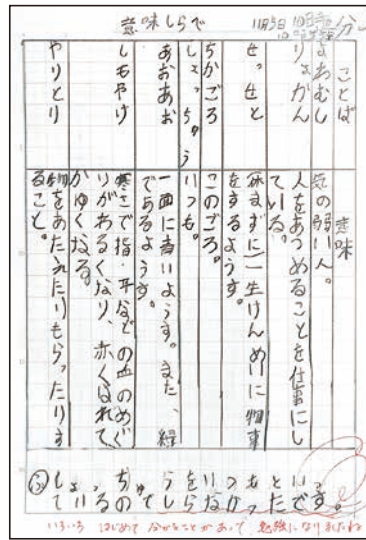 意味しらべ
11月5日
ことば 意味
よわむし 気の弱い人。
りょかん 人をあつめることを仕事にし
ている。
せっせと 休まずに一生けんめいに物事
をするようす。
ちかごろ このごろ。
しょっちゅう いつも。
あおあお 一面に青いようす。また、緑
であるようす。
しもやけ 寒さで指・耳などの血のめぐ
りがわるくなり、赤くはれて
かゆくなる。
やりとり 物をあたえたりもらったりす
ること。
しょっちゅうをいつもとい
ているのでしらなかったです。
いろいろ はじめて 分かることがあって 勉強になりましたね